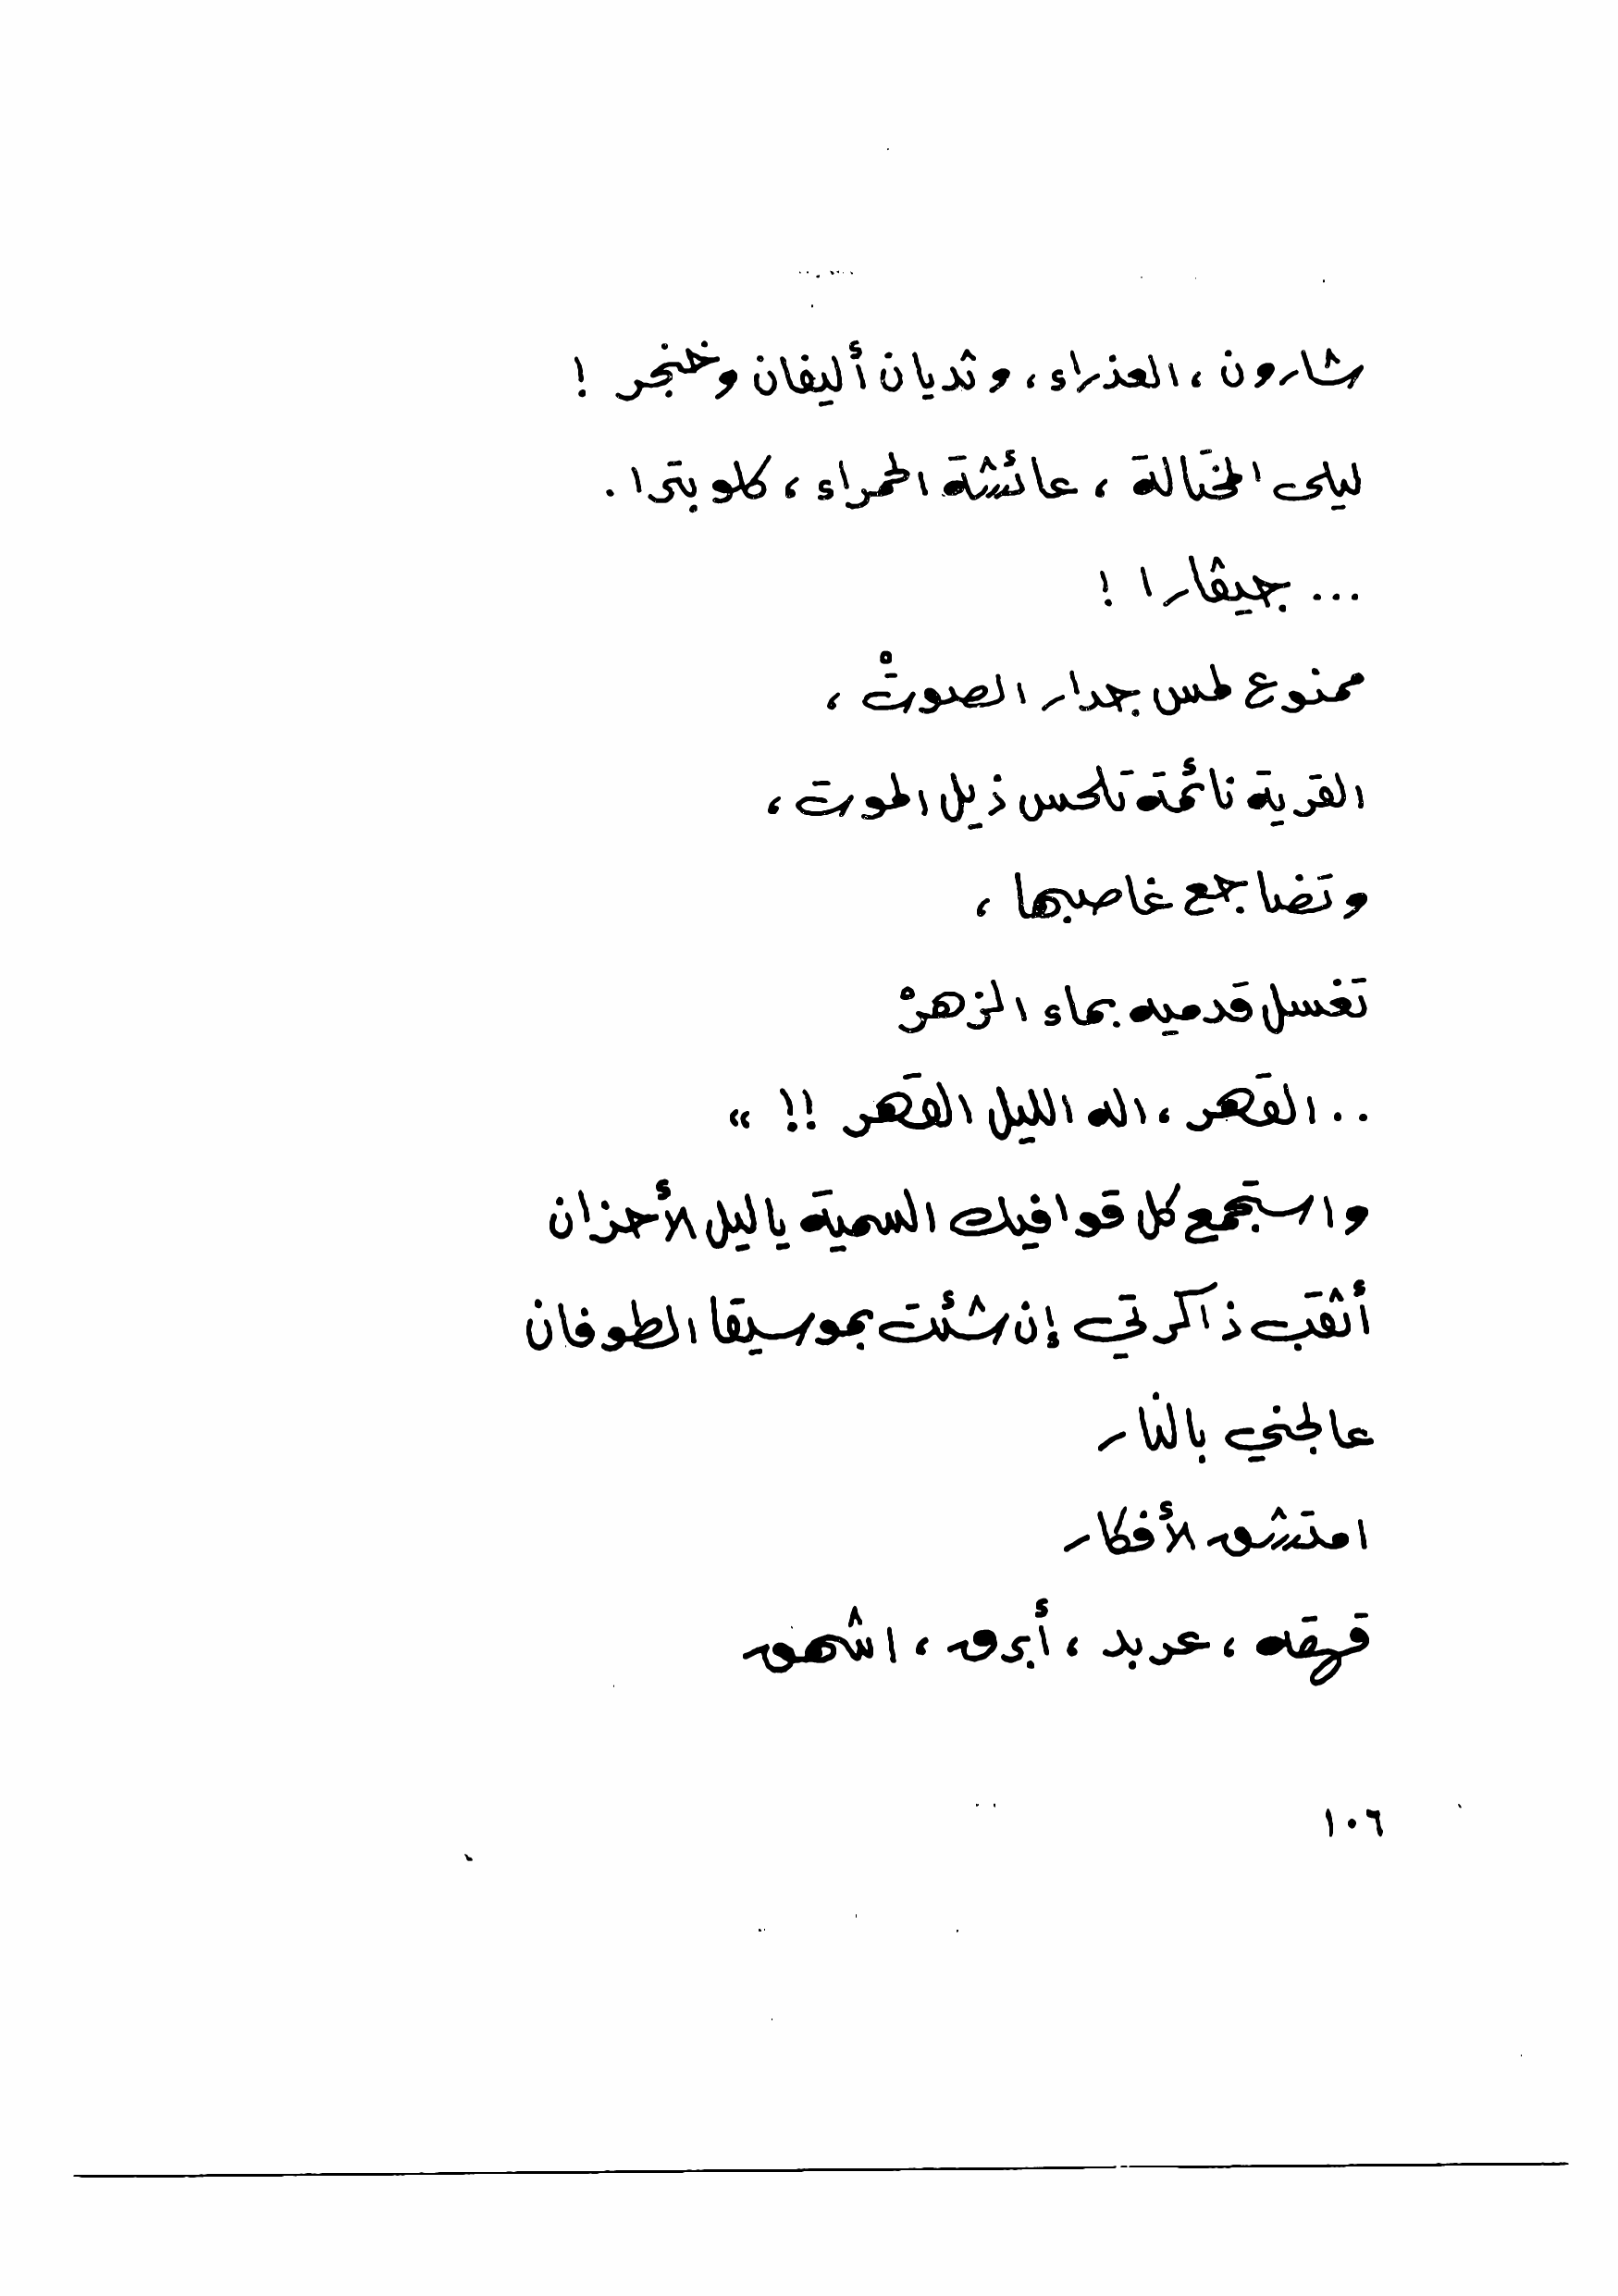 شارون ، العذراء ، وثديان أليفان وخنجر !
ليلى المختالة ، عائشة الحمراء ، كلوبترا .
... جيڤارا !
ممنوع لمس جدار الصوتْ ،
القرية نائمة تلحس ذيل الموت ،
وتضاجع غاصبها ،
تغسل قدميه بماء الزهرْ
.. القهر ، اله الليل القهر !! »
واستجمع كل قوافيك السمية ياليل الأحزان
أثقب ذاكرتي إن شئت بموسيقا الطوفان
عالجني بالنار
امتشق الأفكار
قهقه ، عربد ، أبرق ، اشهق
١٠٦